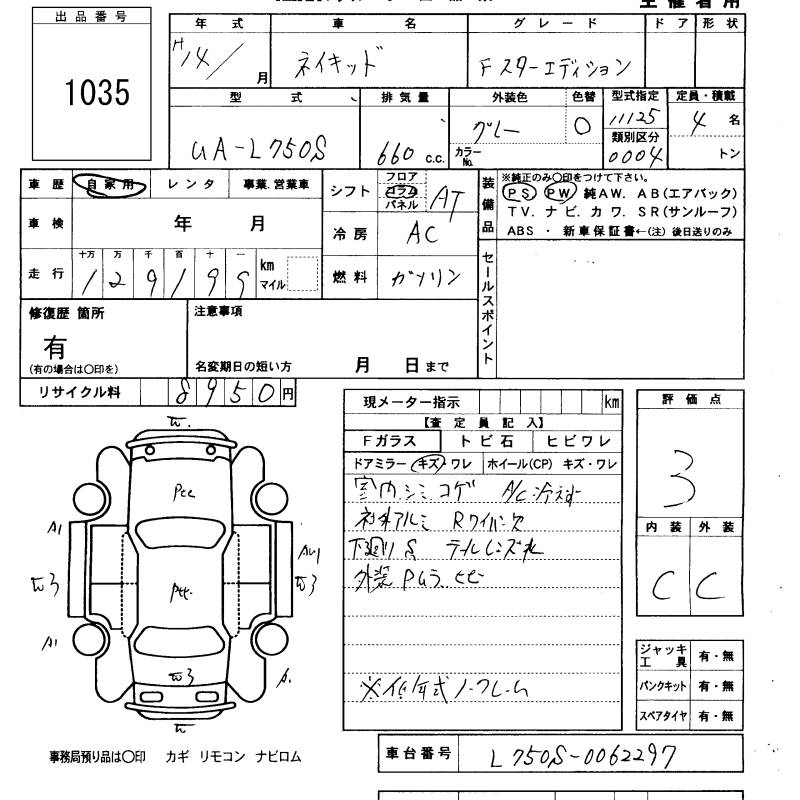 出品番号
1035
年式 車名 グレード ドア 形状
H14/ 月 ネイキッド Fスターエディション
型式 排気量 外装色 色替 型式指定 定員・積載
UA-L750S 660 c.c. グレー カラーNo. 〇 11125 4 名
類別区分
0004 トン
車歴 自家用 レンタ 事業.営業車
車検 年 月
走行 十万 万 千 百 十 一
129199 km
マイル
シフト フロア コラム パネル AT
冷房 AC
燃料 ガソリン
装備品 ※純正のみ〇印をつけて下さい。
PS PW 純AW. AB(エアバック)
TV. ナビ. カワ. SR(サンルーフ)
ABS ・ 新車保証書←(注) 後日送りのみ
セールスポイント
修復歴 箇所
有
(有の場合は〇印を)
注意事項
名変期日の短い方 月 日まで
リサイクル料 8950円
現メーター指示 km
【査定員記入】
Fガラス トビ石 ヒビワレ
ドアミラー キズ・ワレ ホイール(CP) キズ・ワレ
室内シミ コゲ A/C冷えず
社外アルミ Rワイパー欠
下廻りS テールレンズ水
外装PムラヒヒÎ
※低年式ノークレーム
評価点
3
内装 外装
C C
ジャッキ工具 有・無
パンクキット 有・無
スペアタイヤ 有・無
A1
A1
事務局預り品は〇印 カギ リモコン ナビロム
車台番号 L750S-0062297